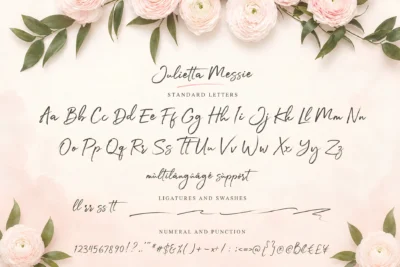 Julietta Messie
STANDARD LETTERS
Aa Bb Cc Dd Ee Ff Gg Hh Ii Jj Kk Ll Mm Nn
Oo Pp Qq Rr Ss Tt Uu Vv Ww Xx Yy Zz
múltilängüâgè sùppört
LIGATURES AND SWASHES
ll rr ss tt
NUMERAL AND PUNCTION
1234567890!?